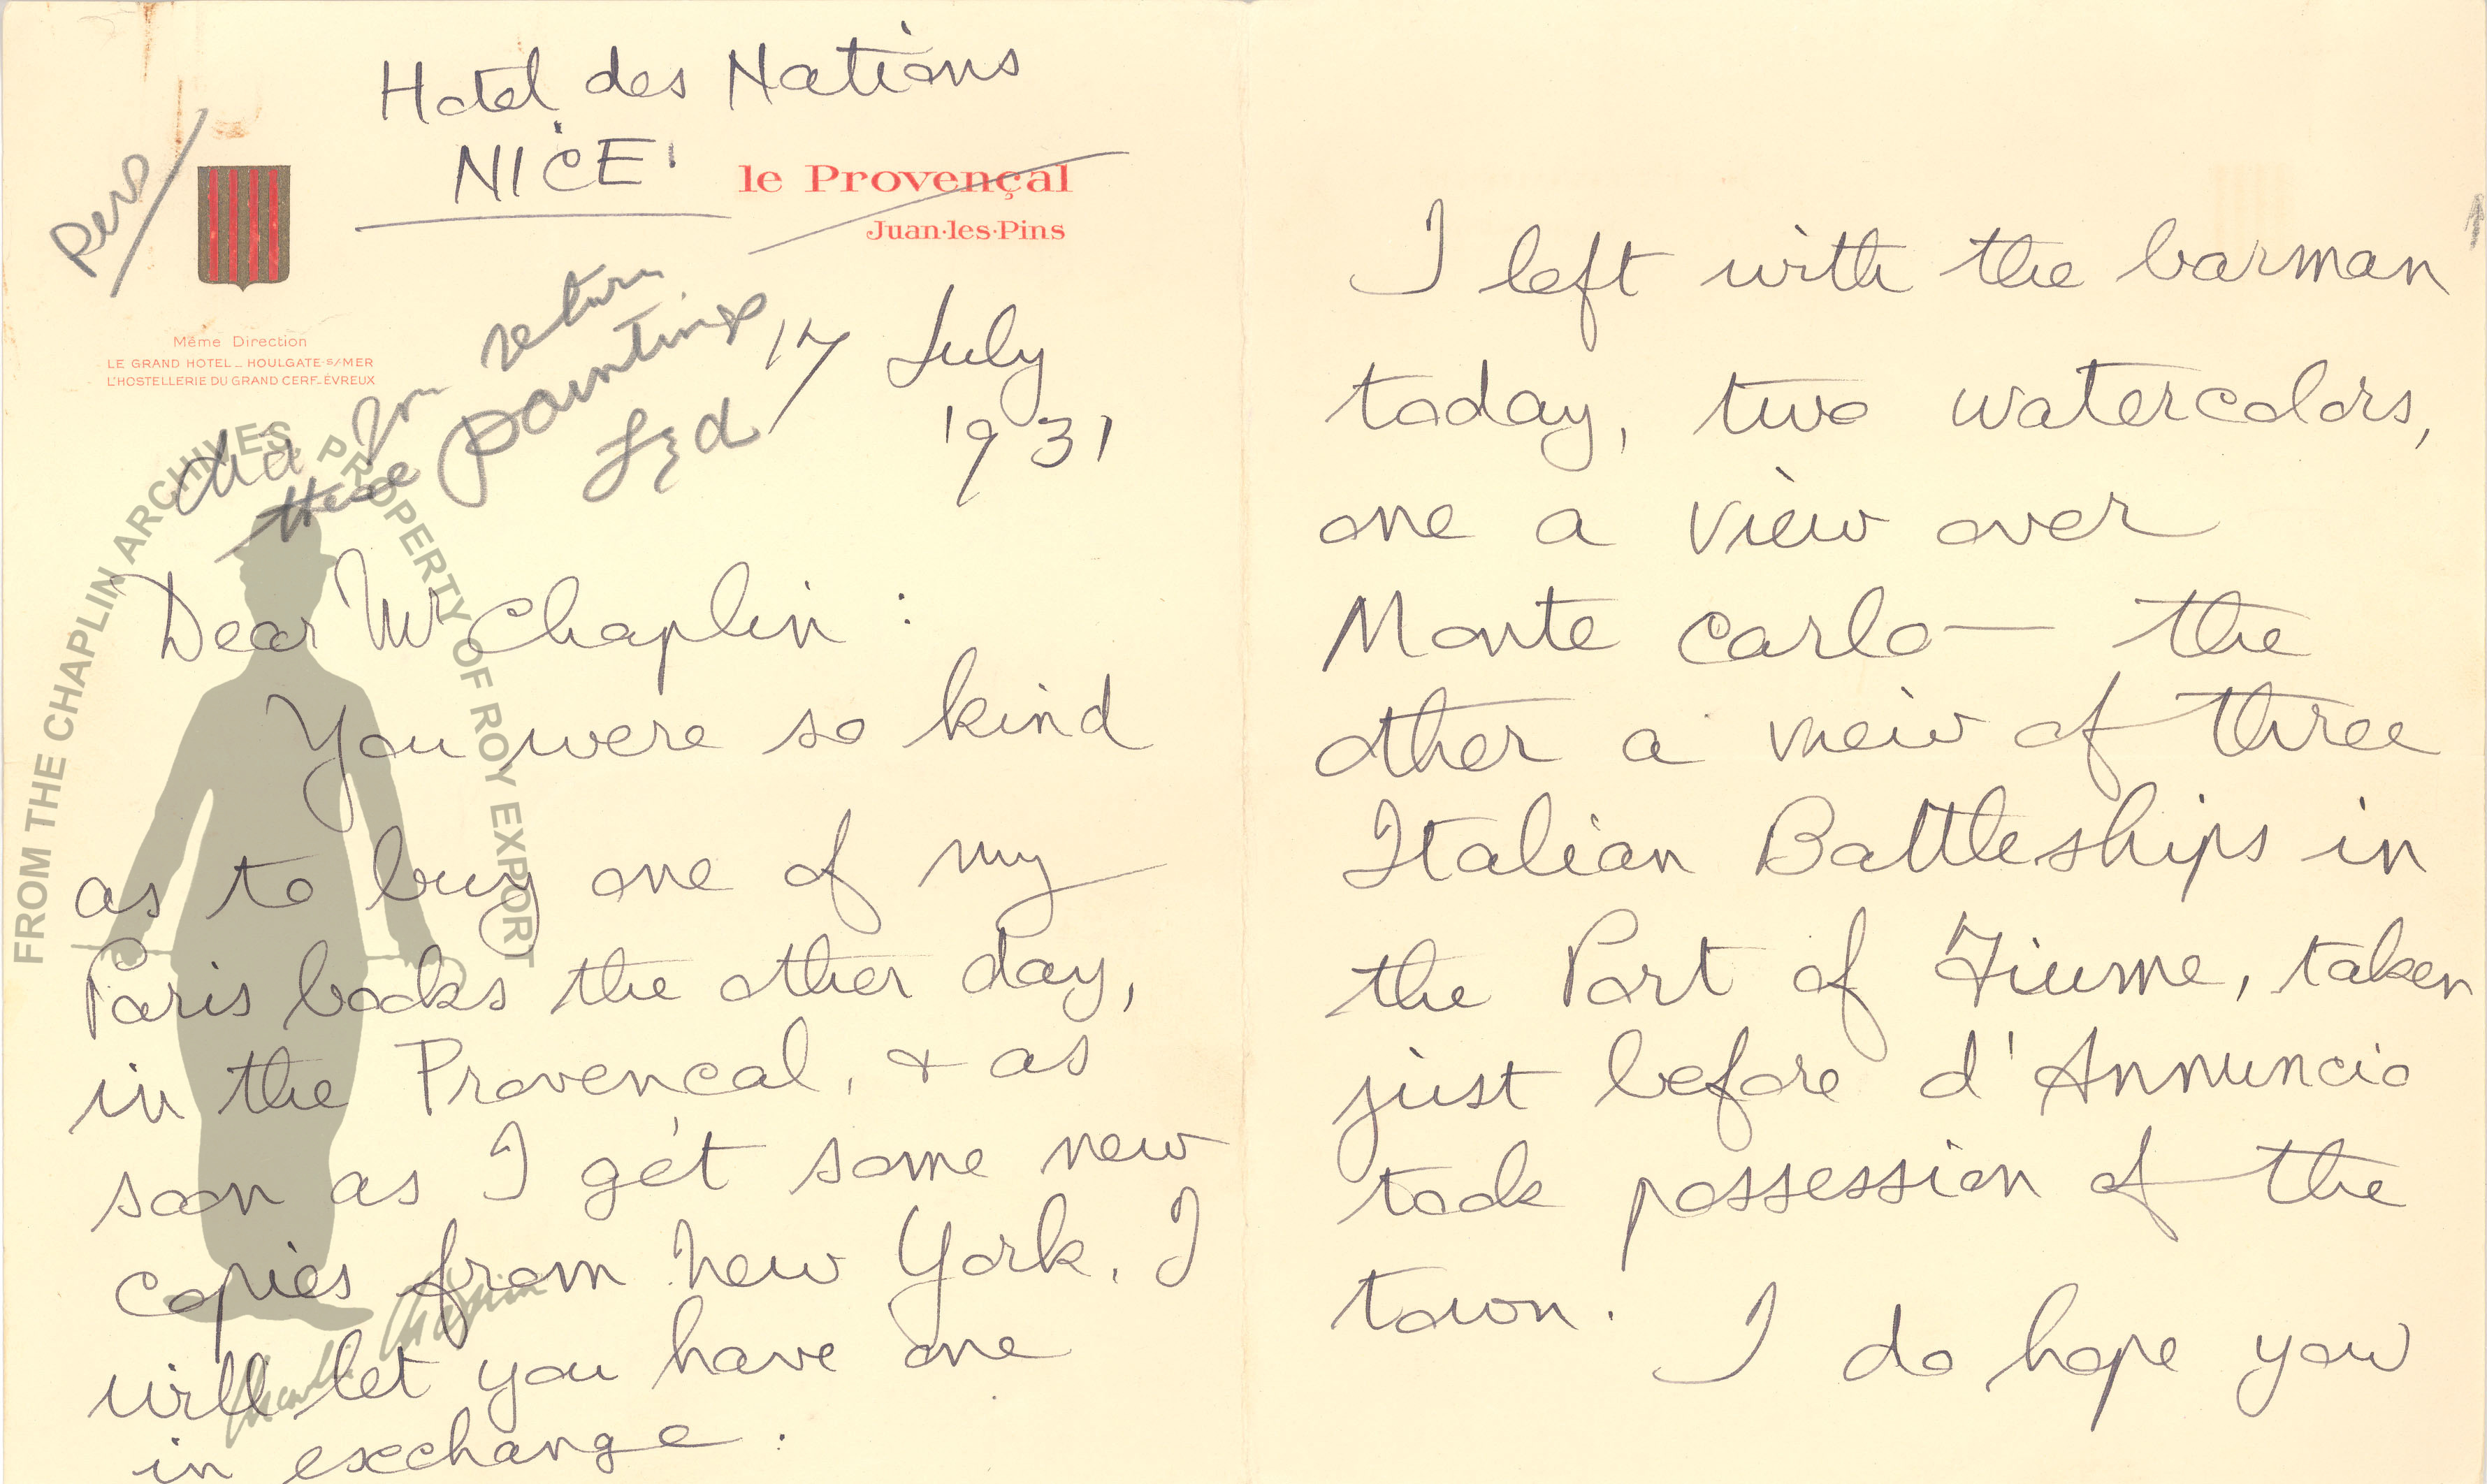 Hotel des Nations
NICE
le Provençal
Juan-les-Pins
Pers
Même Direction
LE GRAND HOTEL _ HOULGATE-S/MER
L'HOSTELLERIE DU GRAND CERF_ÉVREUX
did you return
these paintings
17 July
1931
FROM THE CHAPLIN ARCHIVES, PROPERTY OF ROY EXPORT
Dear Mr Chaplin :
You were so kind
as to buy one of my
Paris books the other day,
in the Provencal, & as
soon as I get some new
copies from New York, I
will let you have one
in exchange.
Charlie Chaplin
I left with the barman
today, two watercolors,
one a view over
Monte Carlo — the
other a view of three
Italian Battleships in
the Port of Fiume, taken
just before d'Annuncio
took possession of the
town.
I do hope you